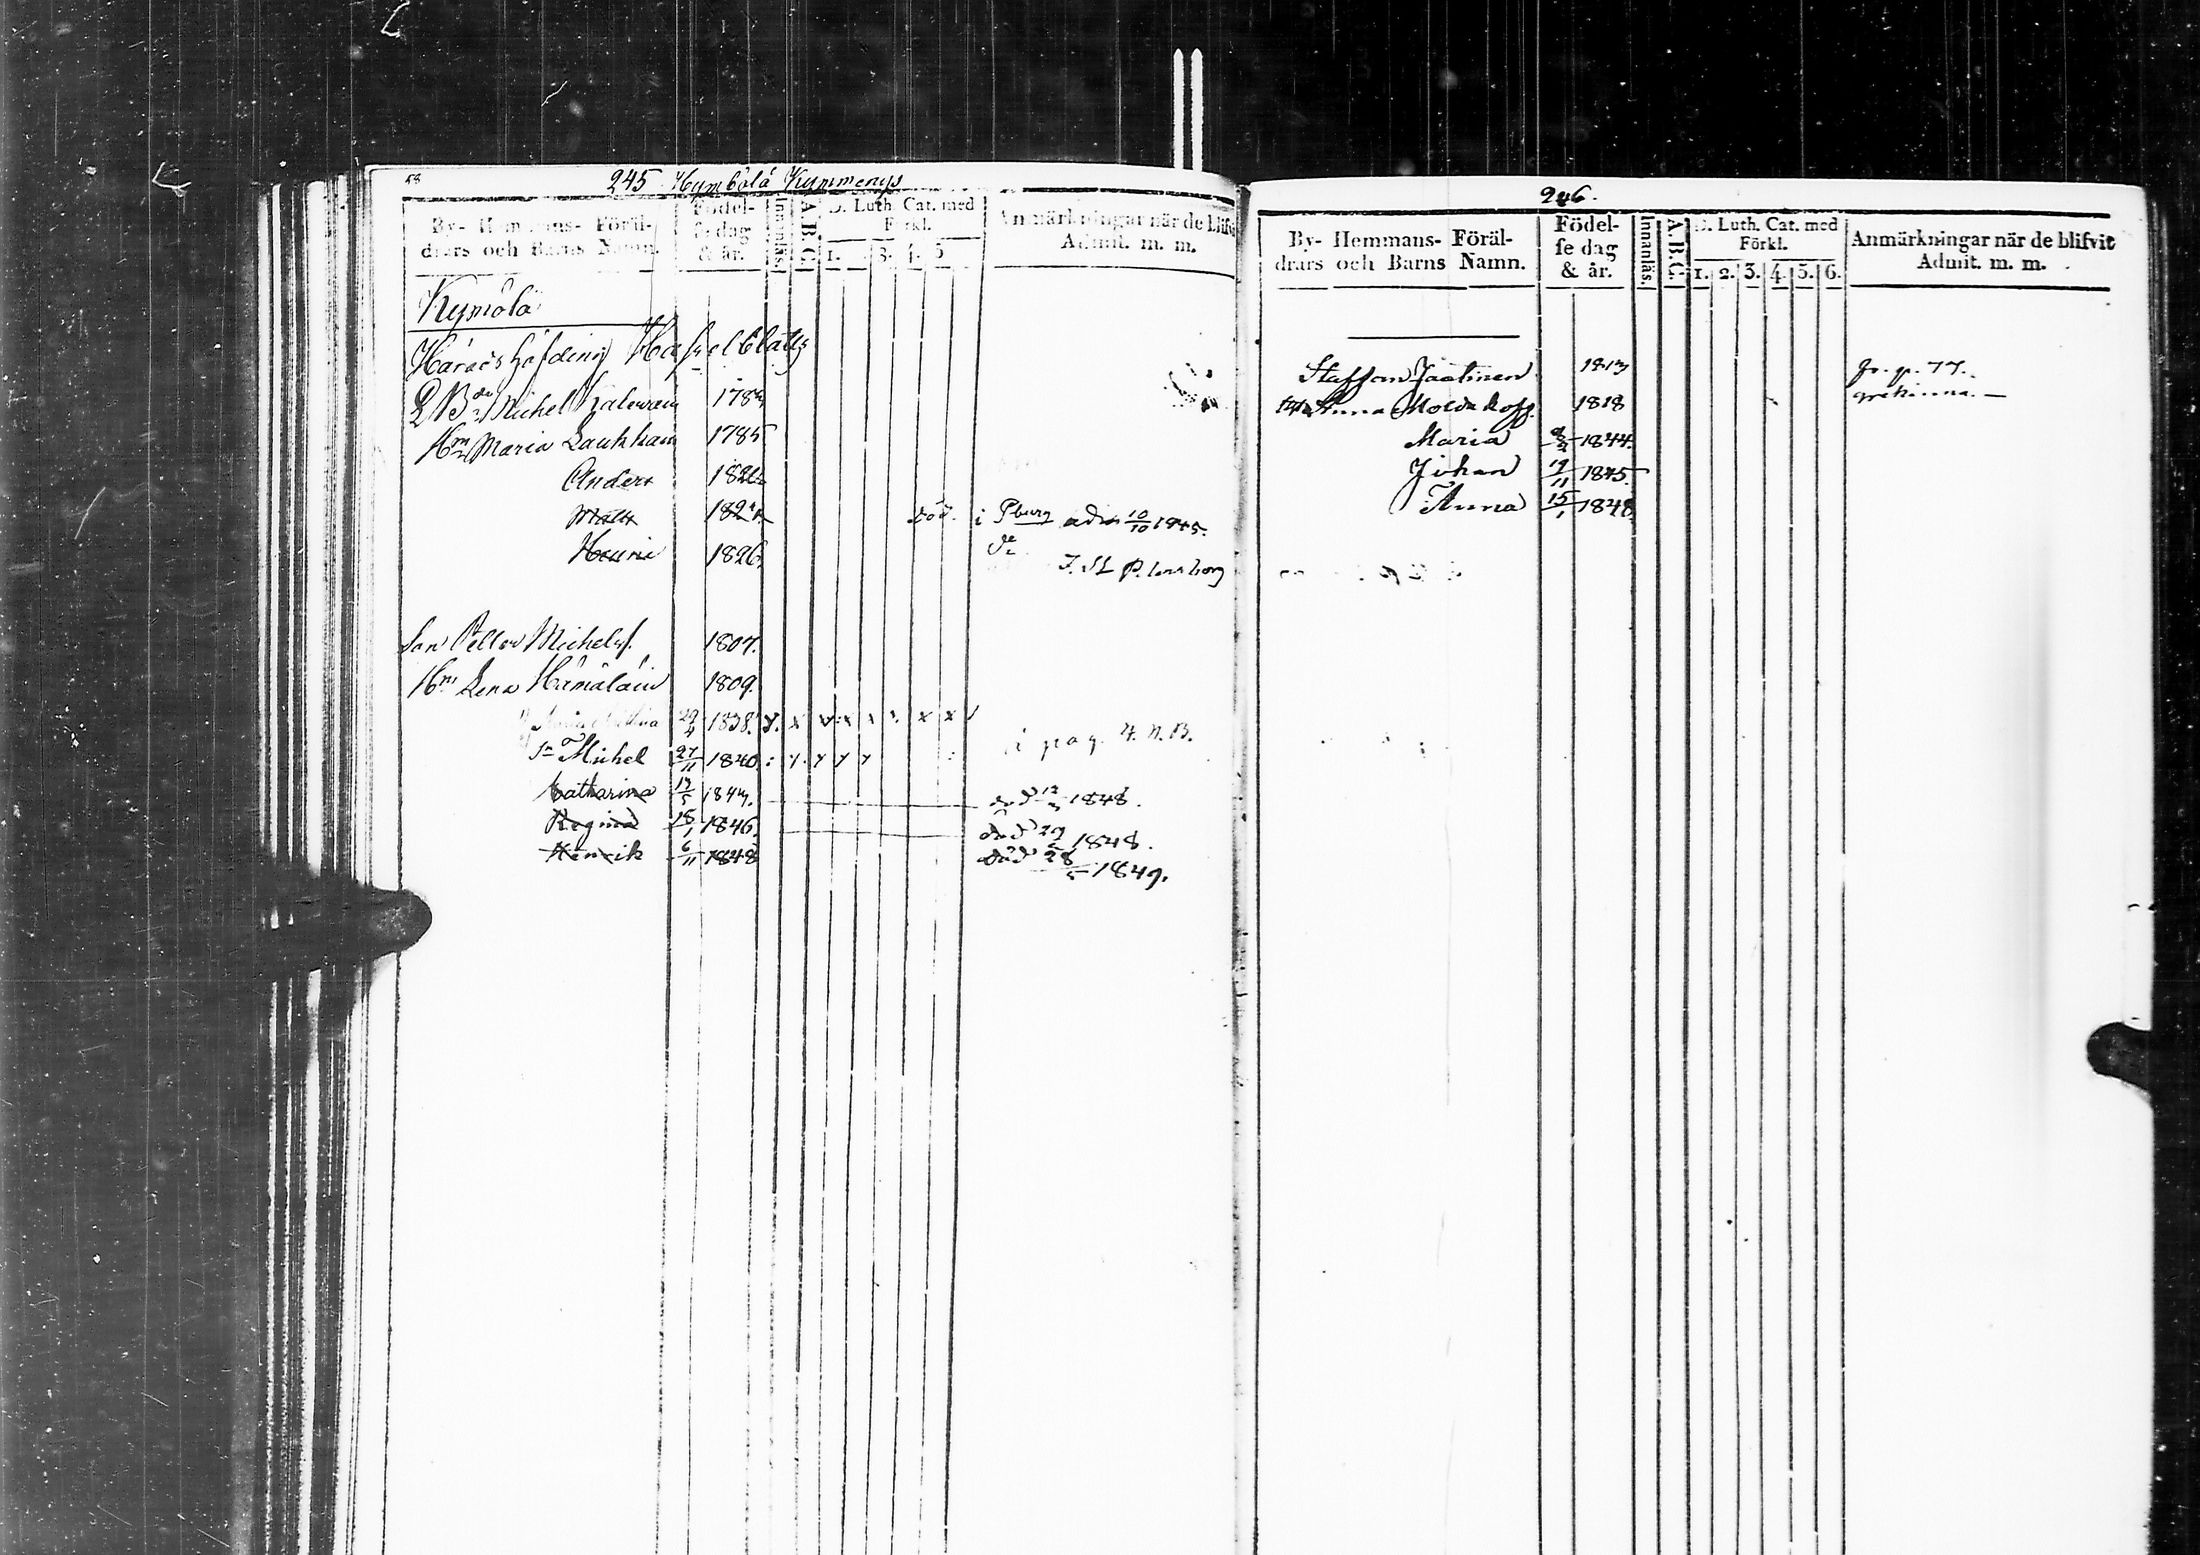 58
245 Hymbölä Kymmenys
By- Hemmans- Föräl-
drars och Barns Namn.
Födel-
se dag
& år.
Innanläs.
A.B.C.
D. Luth. Cat. med
Förkl.
1. 3. 4. 5
Anmärkningar när de blifvit
Admit. m. m.
Kymölä
Härads höfding Hasselblatts
Michel 178
Hu Maria Laukkain 1785
Anders 182
Matts 182 död. i Pburg adm 10/10 1845.
1826. I. St. Petersborg
Son Petter Michels. 1807.
Hu Lena Hämäläin 1809.
29/4 1838.
Sn Michel 27/11 1840. i pag. 4. N.B.
Catharina 13/5 1843. död 1848.
Regina 18/1 1846. död 1848.
Henrik 6/11 1848 död 28/5 1849.
246.
By- Hemmans- Föräl-
drars och Barns Namn.
Födel-
se dag
& år.
Innanläs.
A.B.C.
D. Luth. Cat. med
Förkl.
1. 2. 3. 4. 5. 6.
Anmärkningar när de blifvit
Admit. m. m.
Staffan Jaatinen 1813 fr. p. 77.
Anna 1818
Maria 1844.
Johan 19/11 1845.
Anna 15/1 1848.